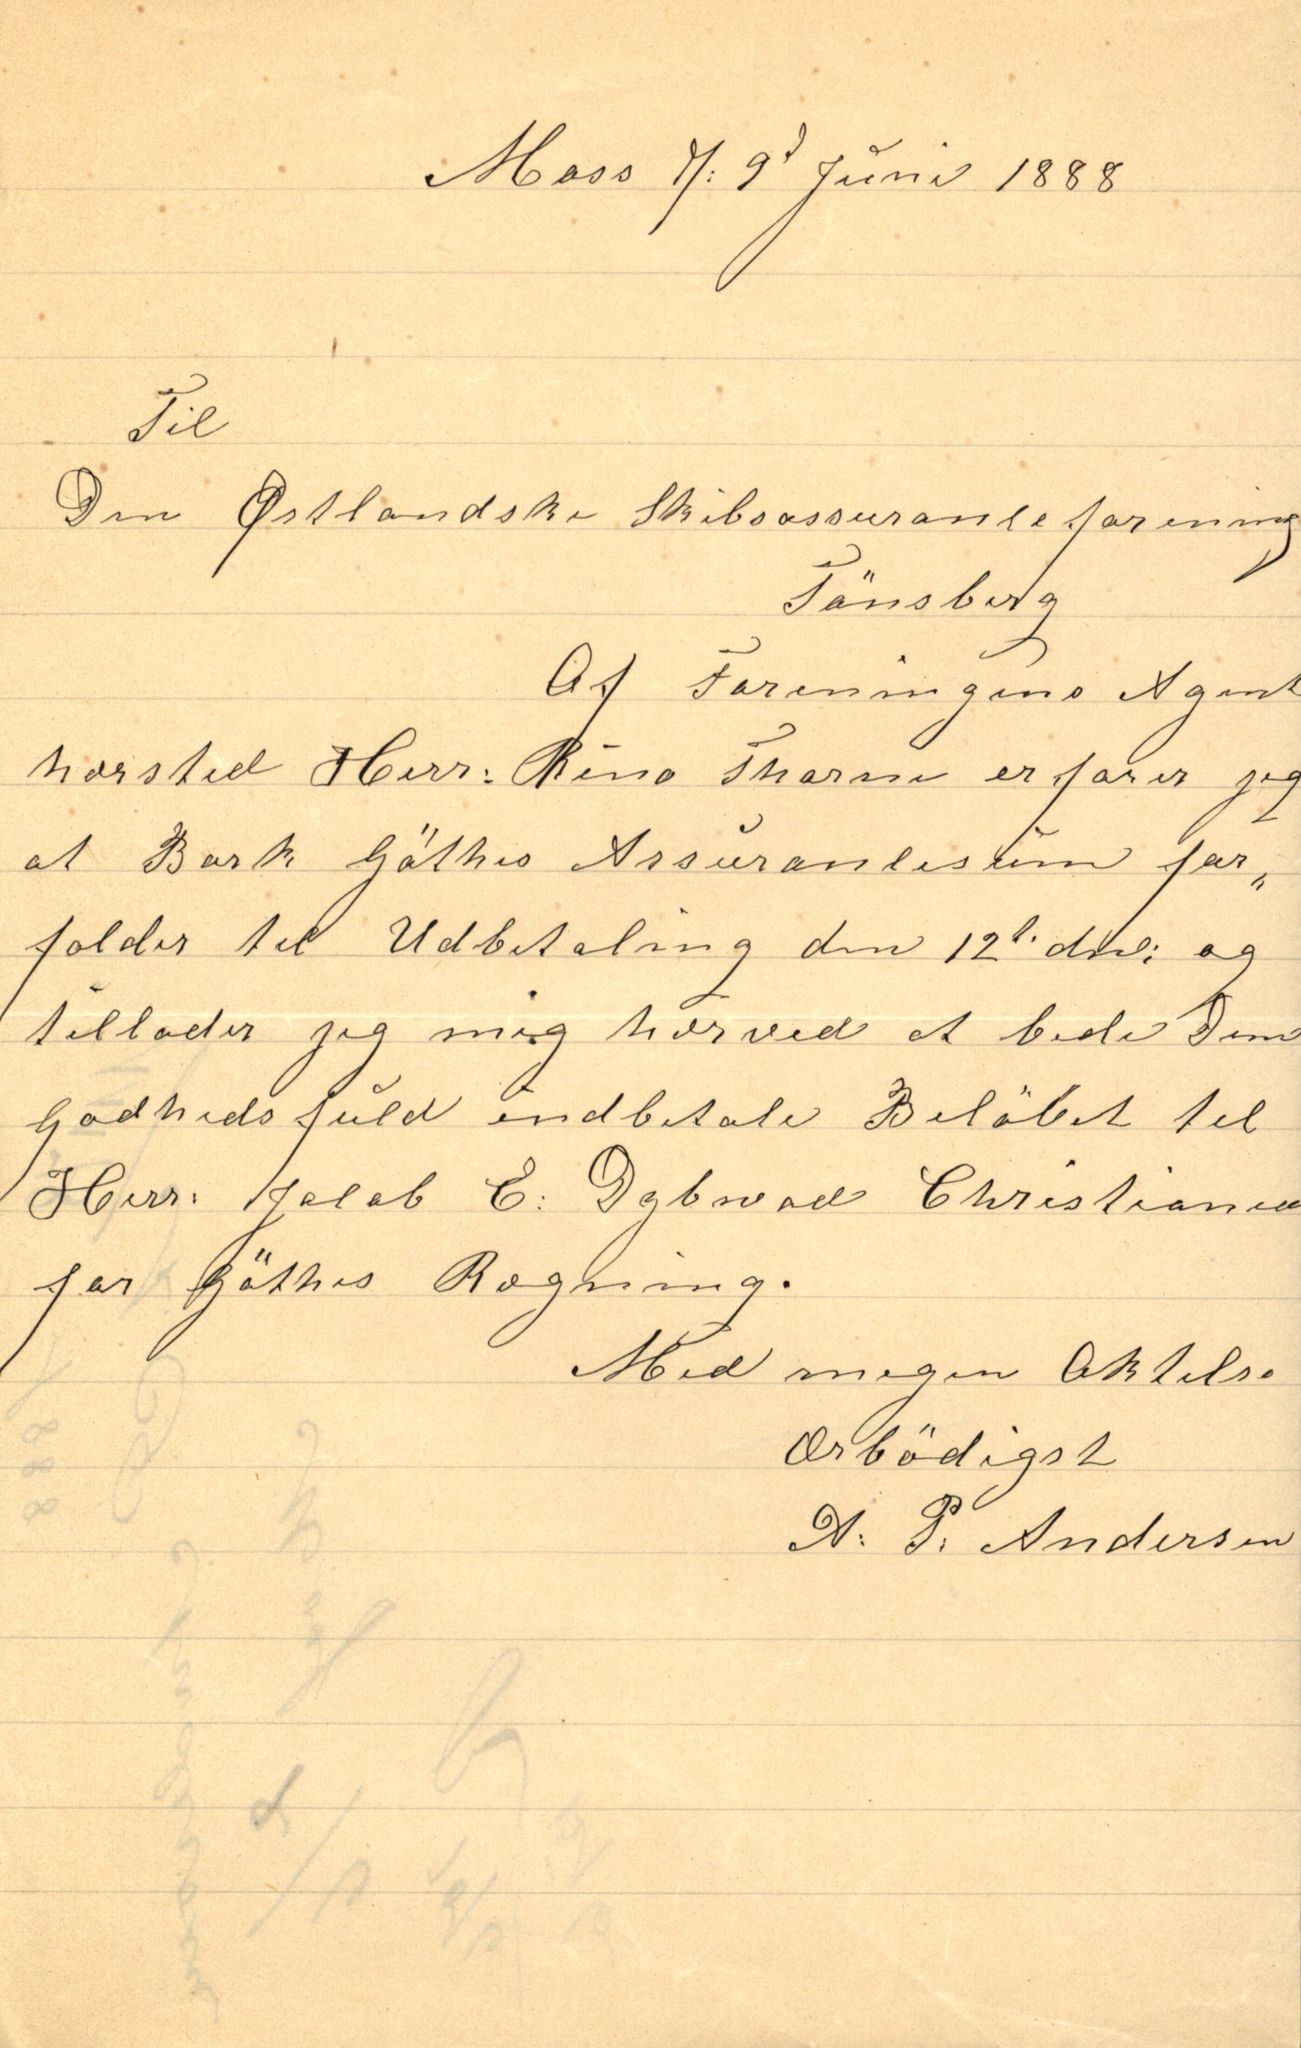 Moss d/: 9d Juni 1888
Til
Den Østlandske Skibsassuranceforening
Tönsberg
Af Foreningens Agent
hersted Herr: Rino Thorne erfarer jeg
at Bark Göthes Assurancesum for„
falder til Udbetaling den 12t. dns: og
tillader jeg mig herved at bede Dem
godhedsfuld indbetale Belöbet til
Herr: Jacob C. Dybwad Christiania
for Göthes Regning.
Med megen Aktelse
Ærbödigst
A. P. Andersen